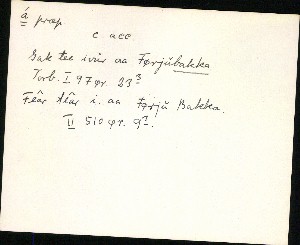 á præp
c. acc
Gak tee ivir aa Førjŭbakka
Torb. I 97 ør. 23³
Fear tear i. aa Førjŭ Bakka.
II 510 ør. 9⁷.